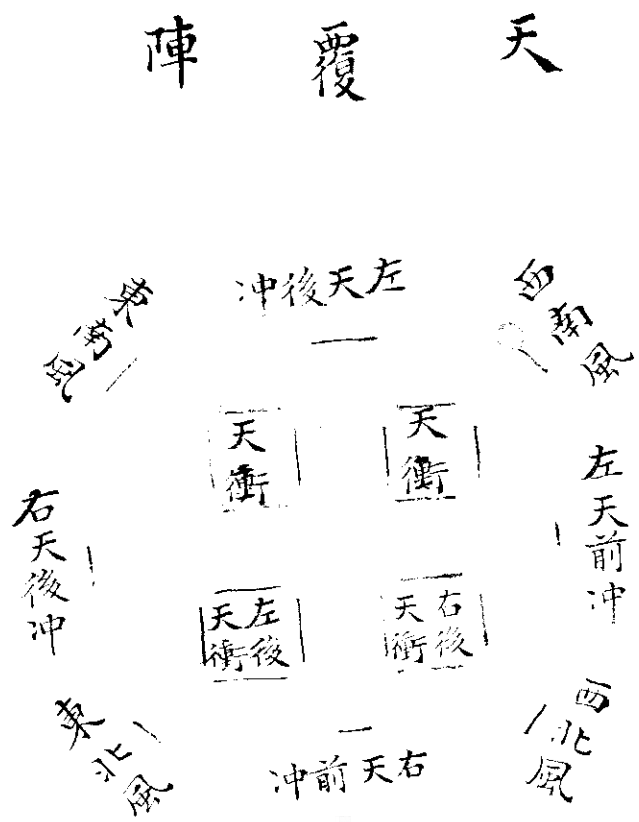 天覆陣
左天後冲
西南風
東南風
天衝
天衝
左天前冲
右天後冲
右後天衝
左後天衝
西北風
東北風
右天前冲